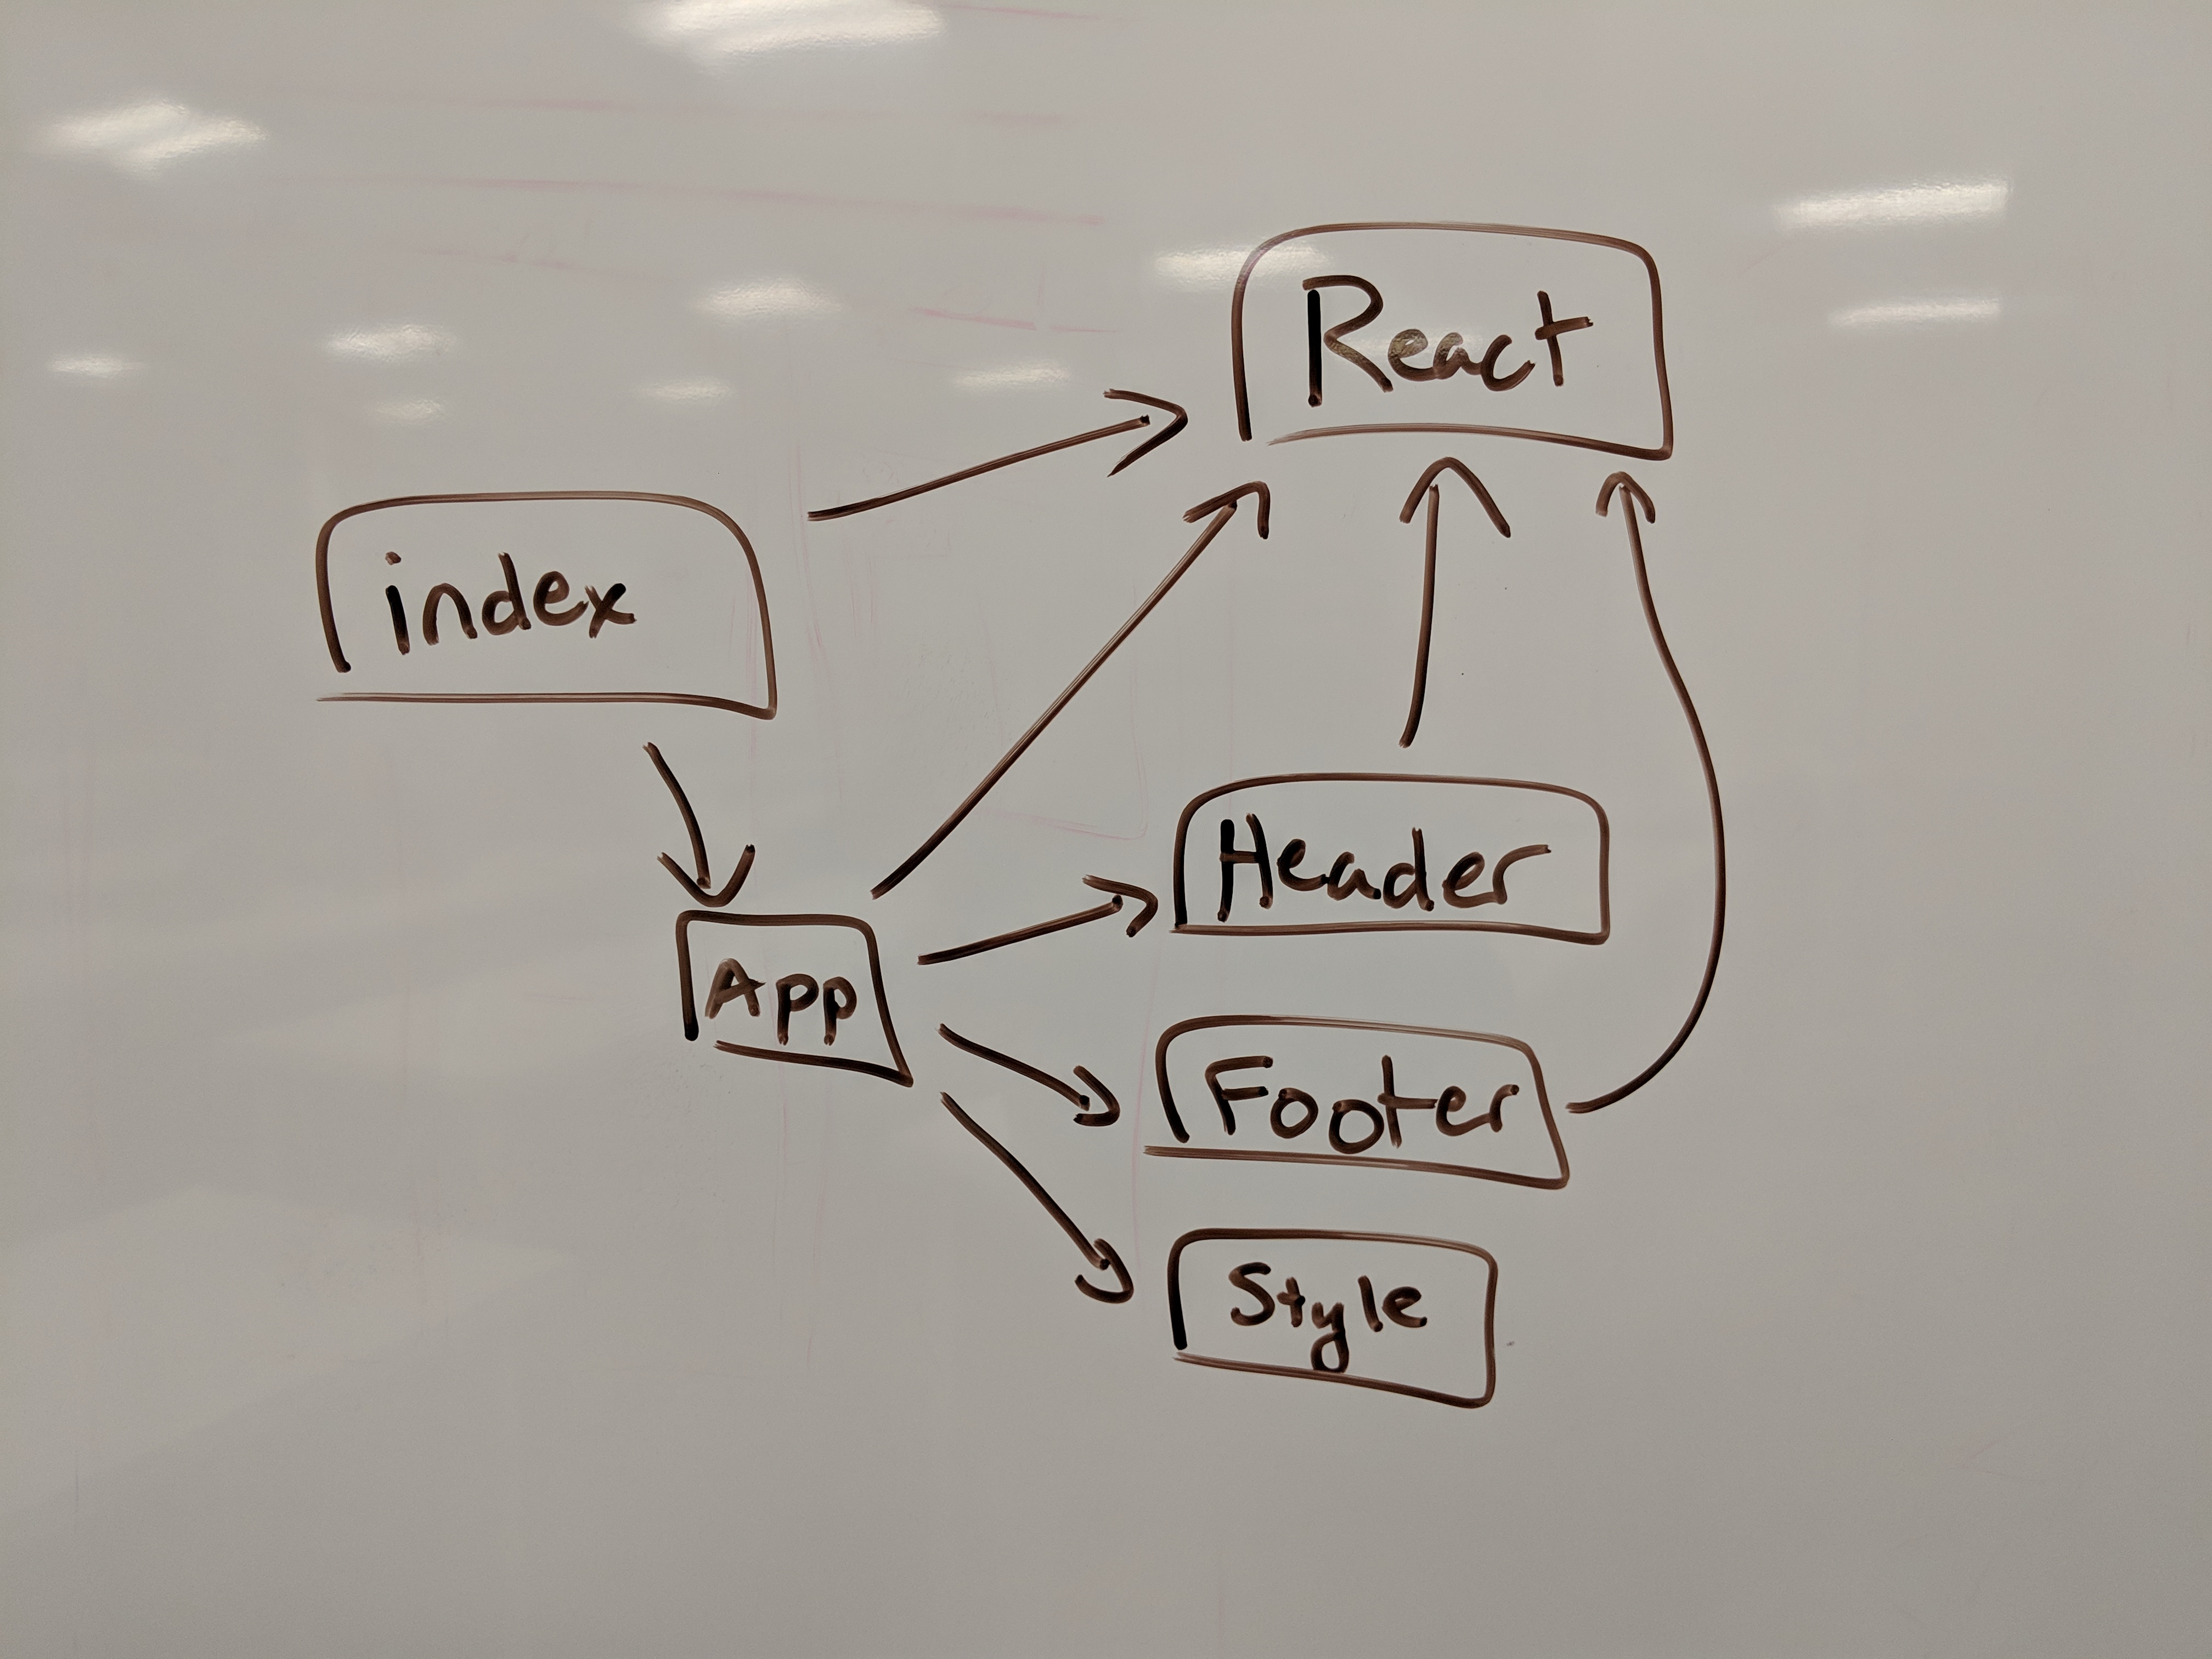 React
index
Header
App
Footer
Style